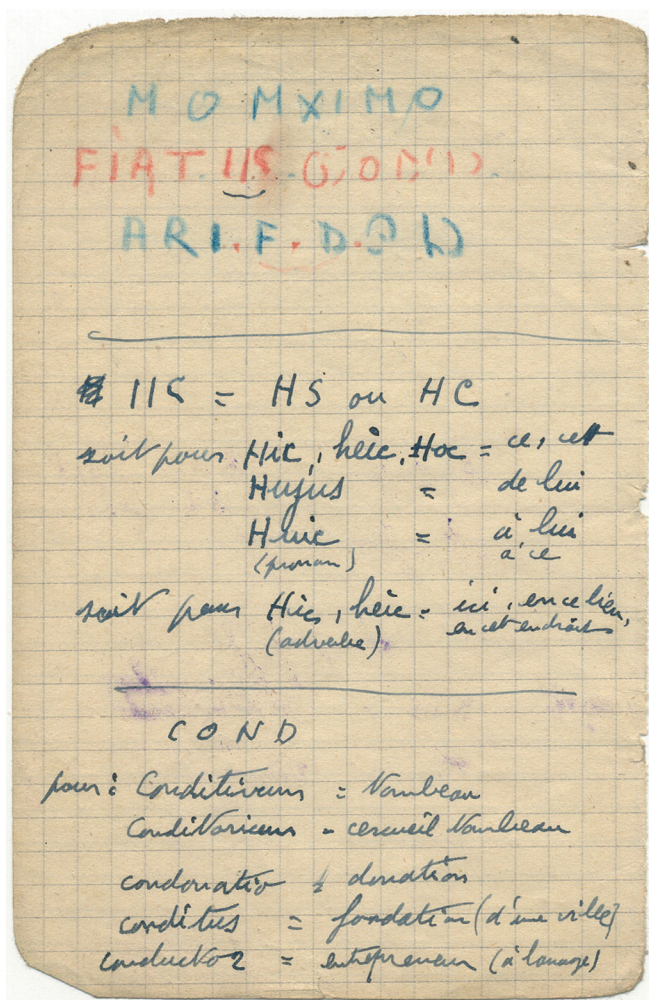 M O M X I M O
FIAT. IIS. G) O D
A R I. F. D.
IIS = HS ou HC
soit pour Hic, heic, Hoc = ce, cett
Hujus = de lui
Huic = à lui
(pronom) à ce
soit pour Hic, heic = ici, en ce lieu,
(adverbe) en cet endroit
COND
pour : Conditivum = Tombeau
Conditorium = cercueil Tombeau
condonatio = donation
conditus = fondation (d'une ville)
conductor = entrepreneur (à louage)